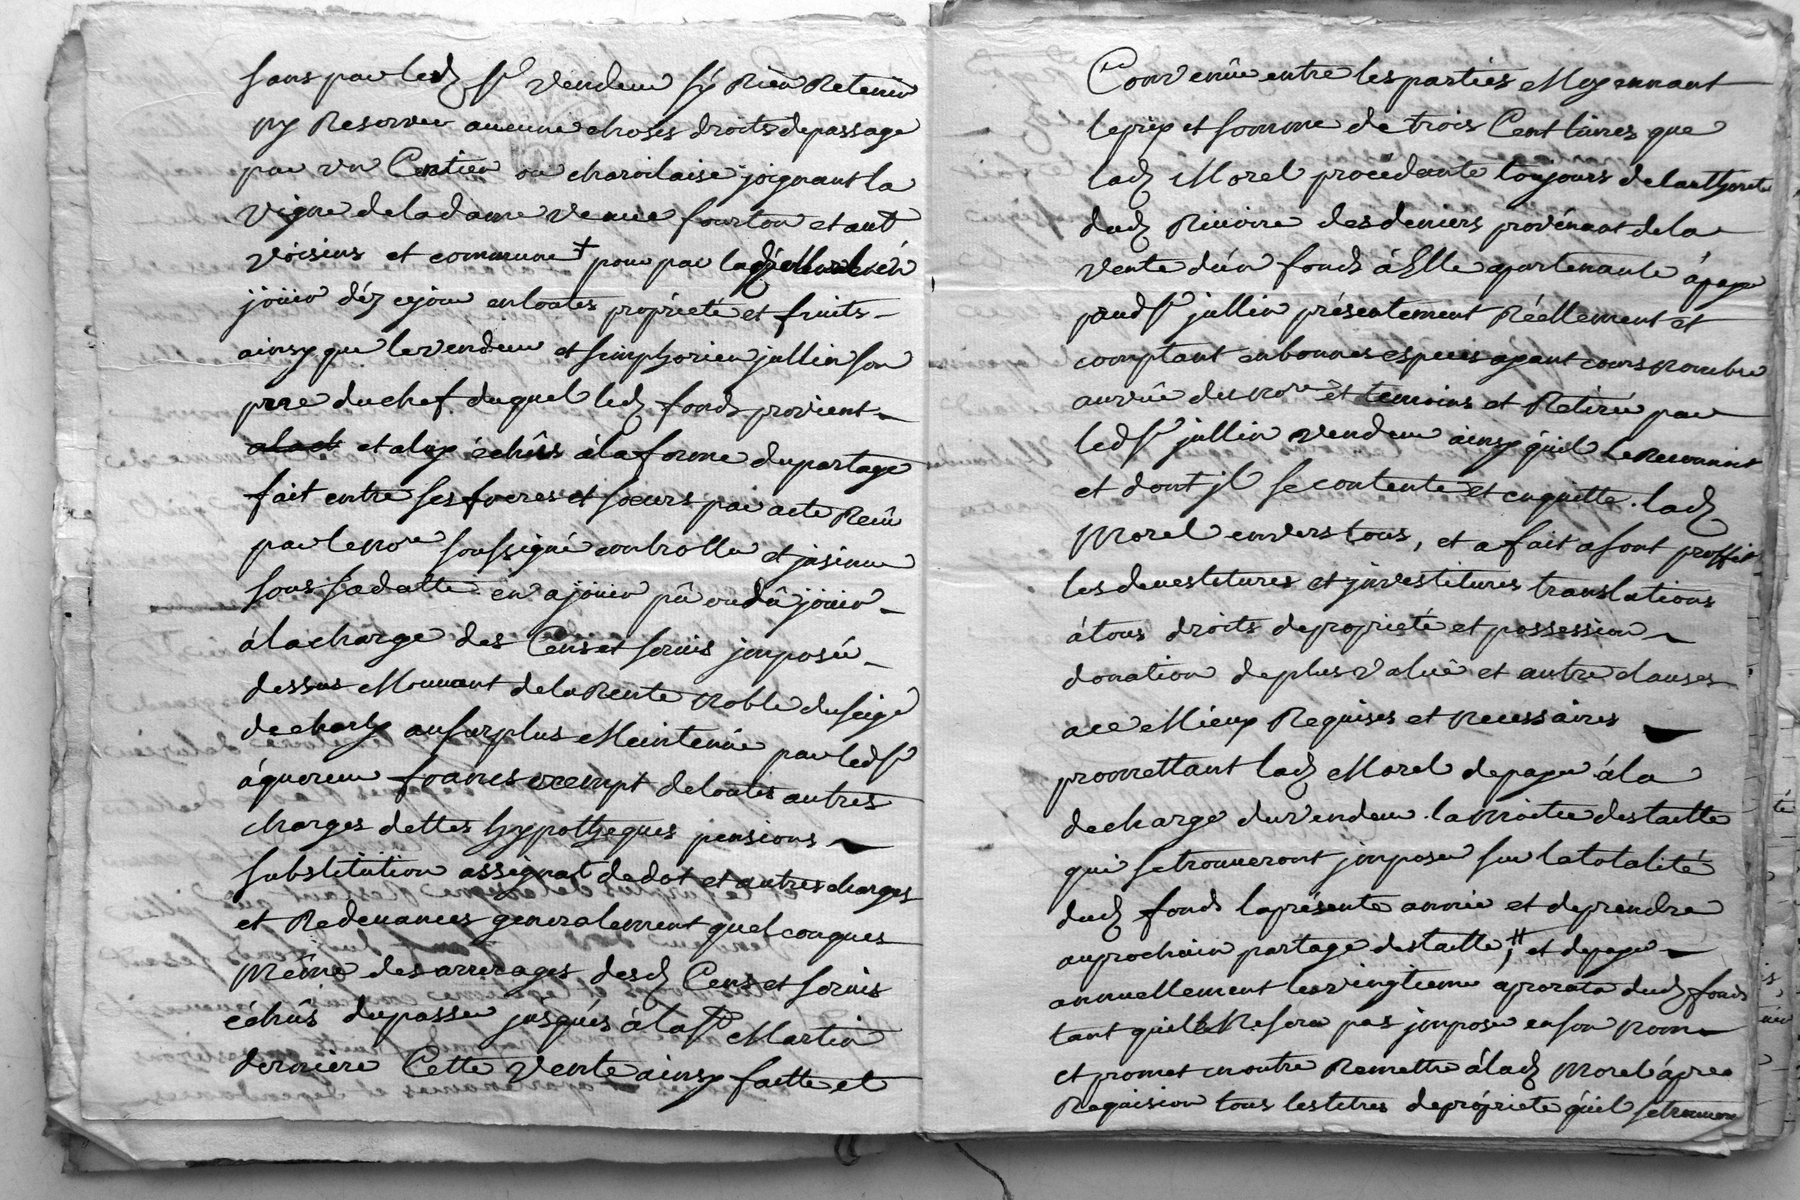 sans par led sr vendeur sÿ Rien Retenir
ny Reserver aucune choses droits de passage
par un Centier ou charoilaise joignant la
vigne de la dame veuve fourton et aut
voisins et commune + pour par lad
joüir déz ce jour en toutes proprieté et fruits
ainsy que le vendeur et simphorien jullin son
pere du chef duquel led fonds provient
et aluy échûs à la forme du partage
fait entre ses freres et soeurs par acte Reçû
par le nore soussigné controllé et jnsinué
sous sa datte en a joüir pû ou dû joüir
à la charge des Cens et servis jmposés
dessus Mouvant de la Rente noble du seigr
de charly au surplus Maintenüe par led sr
franc exempt de toutes autres
charges dettes hypotheques pensions
substitution assignat de dot et autres charges
et Redevances generalement quelconques
Même des arrerages desd Cens et servis
échûs du passé jusqués à la st Martin
derniere Cette vente ainsy faitte et
Convenüe entre les parties Moyennant
le prix et somme de trois Cent livres que
lad Morel procédante toujours de lauthorité
dud Rivoire des deniers provénant de la
vente dún fonds à Elle apartenante à payé
aud sr jullin présentement Réellement et
comptant en bonnes especes ayant cours nombré
au vûe du nore et temoins et Retiré par
led sr jullin vendeur ainsy quil le Reconnoit
et dont jl se contente et en quitte lad
Morel envers tous, et a fait a son proffit
les devestitures et jnvestitures translations
à tous droits de proprieté et possession
donation de plus valüe et autre clauses
a ce Mieux Requises et necessaires
promettant lad Morel de payer à la
decharge du vendeur la moitié des taille
qui se trouveront jmposer sur la totalité
dud fonds la présente année et de prendre
au prochain partage des taille, # et de payer
annuellement les vingtieme a prorata dud fonds
tant quil Ne sera pas jmposé en son nom
et promet en outre Remettre à lad Morel à pre
Requision tous les titres de propriete quil se trouvera